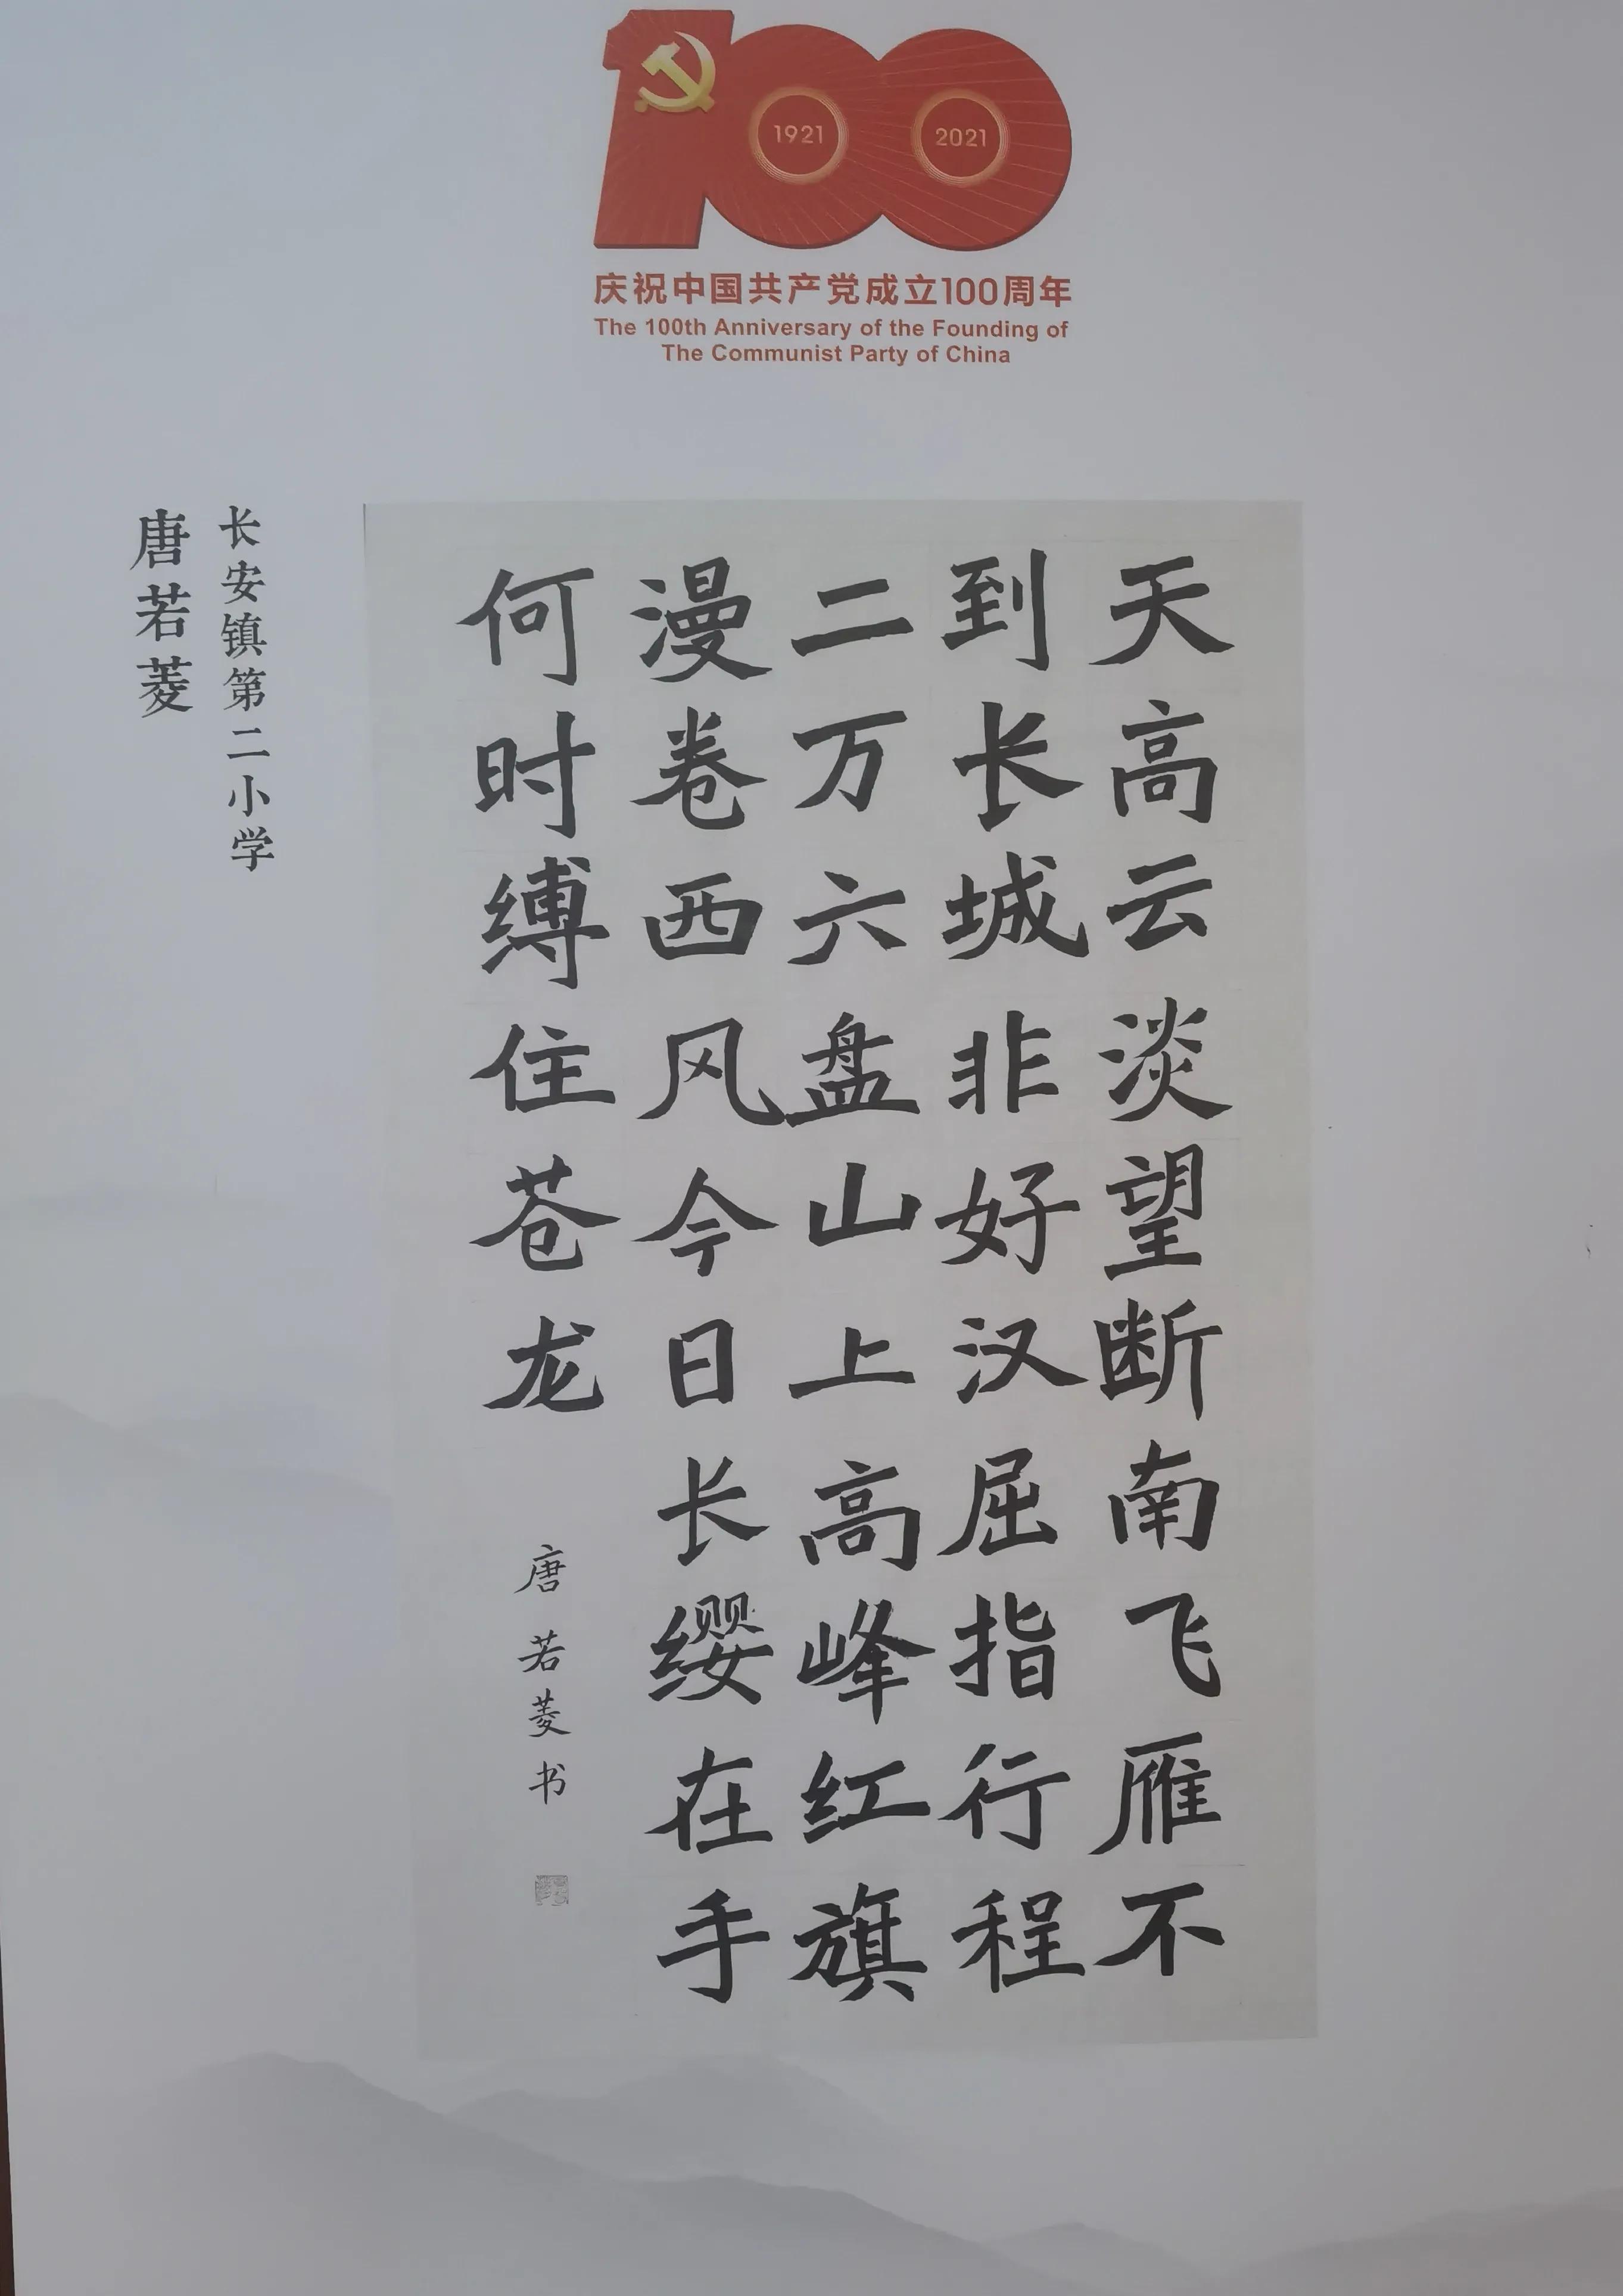 1921
2021
庆祝中国共产党成立100周年
The 100th Anniversary of the Founding of
The Communist Party of China
天高云淡望断南飞雁不
到长城非好汉屈指行程
二万六盘山上高峰红旗
漫卷西风今日长缨在手
何时缚住苍龙
唐若菱书
长安镇第二小学
唐若菱